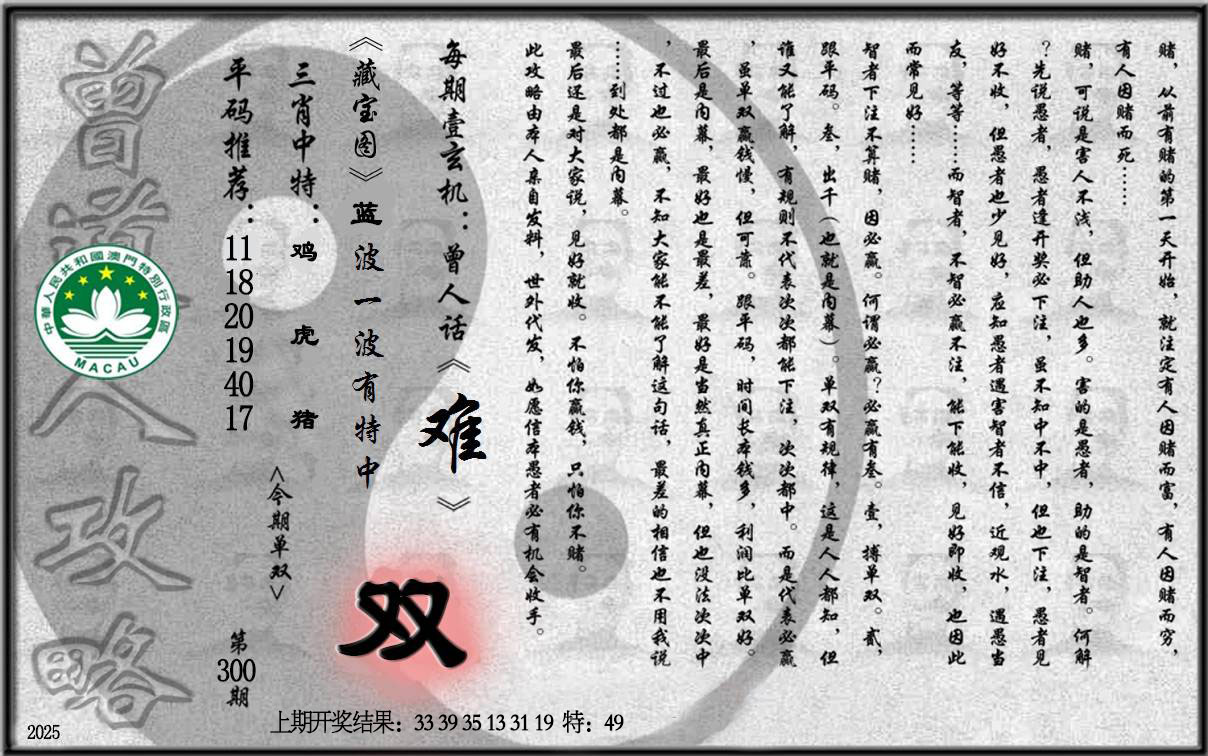 赌，从前有赌的第一天开始，就注定有人因赌而富，有人因赌而穷，
有人因赌而死……
赌，可说是害人不浅，但助人也多。害的是愚者，助的是智者。何解
？先说愚者，愚者逢开奖必下注，虽不知中不中，但也下注，愚者见
好不收，但愚者也少见好，应知愚者遇害智者不信，近观水，遇愚当
友，等等……而智者，不智必赢不注，能下能收，见好即收，也因此
而常见好……
智者下注不算赌，因必赢。何谓必赢？必赢有叁。壹，搏单双。贰，
跟平码。叁，出千（也就是内幕）。单双有规律，这是人人都知，但
谁又能了解，有规则不代表次次都能下注，次次都中。而是代表必赢
，虽单双赢钱慢，但可靠。跟平码，时间长本钱多，利润比单双好。
最后是内幕，最好也是最差，最好是当然真正内幕，但也没法次次中
，不过也必赢，不知大家能不能了解这句话，最差的相信也不用我说
……到处都是内幕。
最后还是对大家说，见好就收。不怕你赢钱，只怕你不赌。
此攻略由本人亲自发料，世外代发，如愿信本愚者必有机会收手。
每期壹玄机：曾人话《难》
《藏宝图》蓝波一波有特中
双
三肖中特：鸡 虎 猪
<今期单双>
平码推荐：11 18 20 19 40 17
第300期
曾道人攻略
中華人民共和國澳門特別行政區
MACAU
上期开奖结果：33 39 35 13 31 19 特：49
2025